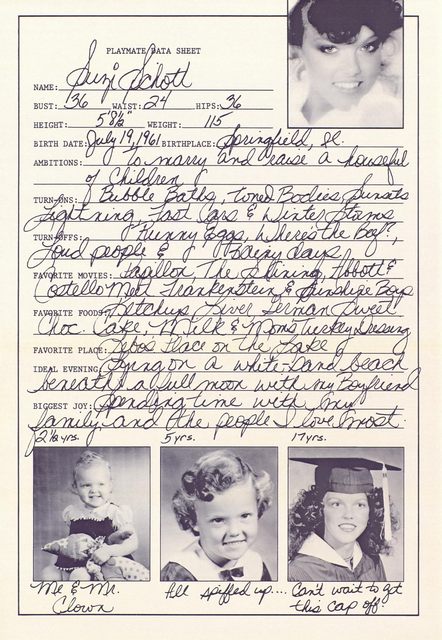 PLAYMATE DATA SHEET
NAME: Suzi Schott
BUST: 36 WAIST: 24 HIPS: 36
HEIGHT: 5'8½" WEIGHT: 115
BIRTH DATE: July 19, 1961 BIRTHPLACE: Springfield, IL.
AMBITIONS: To marry and raise a houseful
of Children
TURN-ONS: Bubble Baths, Toned Bodies, Sunsets
Lightning, Fast Cars & Winter Storms
TURN-OFFS: Runny Eggs, Where's the Beef?,
Loud people & Rainy days
FAVORITE MOVIES: Papillon, The Shining, Abbott &
Costello Meet Frankenstein & Sunshine Boys
FAVORITE FOODS: Ketchup, Liver, German Sweet
Choc. Cake, Milk & Mom's Turkey Dressing
FAVORITE PLACE: Place on the Lake
IDEAL EVENING: Lying on a white-sand beach
beneath a full moon with my Boyfriend
BIGGEST JOY: Spending time with my
family and the people I love most.
2½ yrs. 5 yrs. 17 yrs.
Me & Mr. Clown
All spiffed up....
Can't wait to get this cap off!